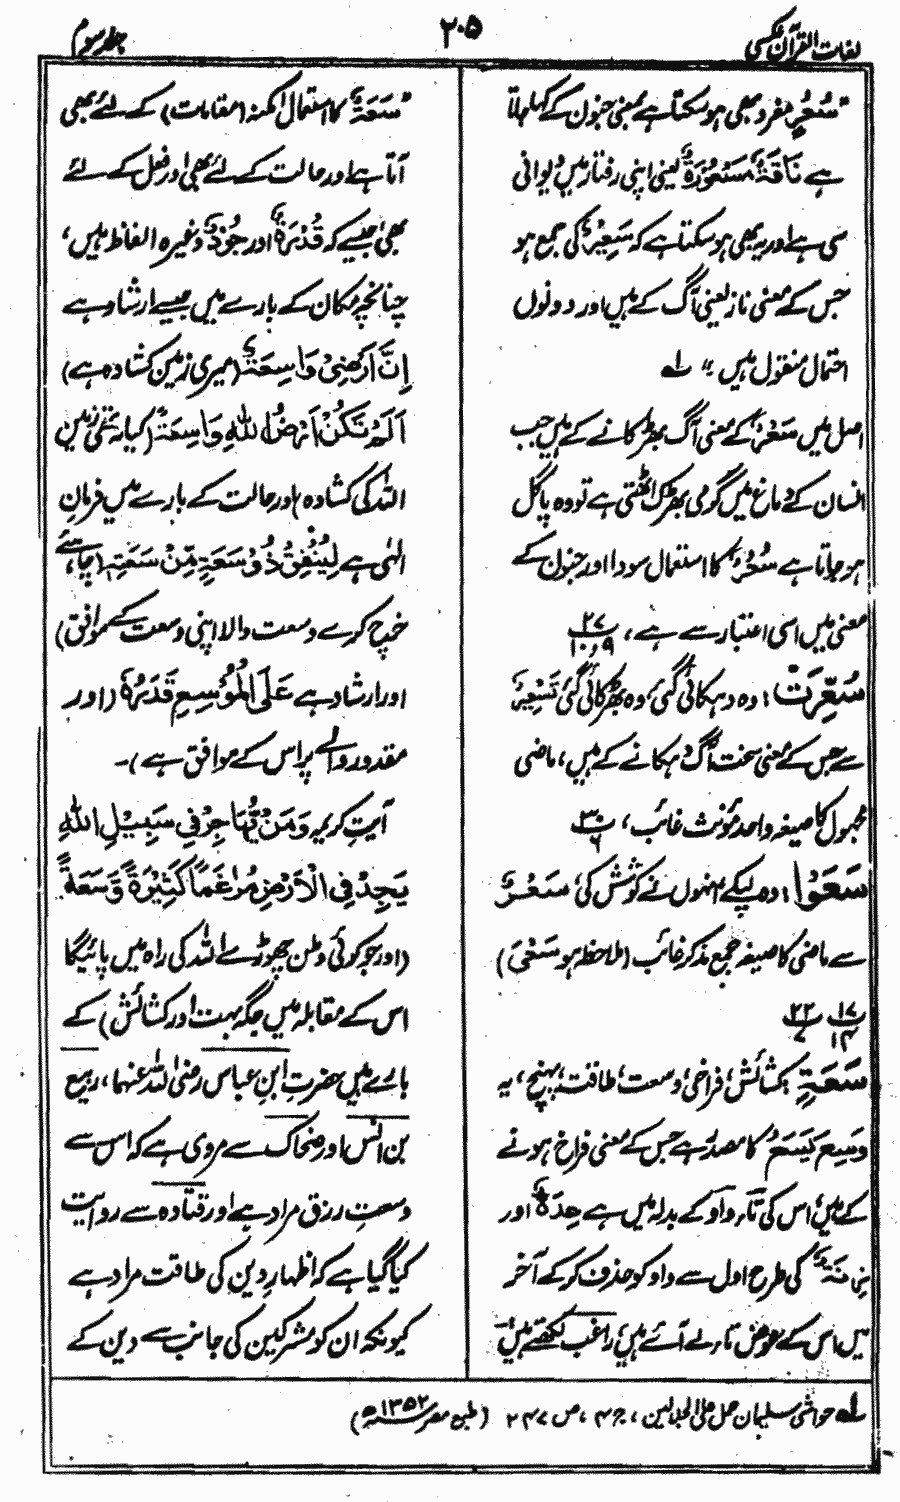 لغات القرآن عکسی
۲۰۵
جلد سوم
"سُعُرٍ مفرد بھی ہو سکتا ہے بمعنی جنون کے کہا جاتا
ہے نَاقَةٌ مَسْعُوْرَةٌ یعنی اپنی رفتار میں دیوانی
سی ہے اور یہ بھی ہو سکتا ہے کہ سَعِیْرٌ کی جمع ہو
جس کے معنی نار یعنی آگ کے ہیں اور دونوں
احتمال منقول ہیں "۔ لہ
اصل میں سَعْرٌ کے معنی آگ بھڑکانے کے ہیں جب
انسان کے دماغ میں گرمی بھڑک اٹھتی ہے تو وہ پاگل
ہو جاتا ہے سُعُرٌ کا استعمال سودا اور جنون کے
معنی میں اسی اعتبار سے ہے ، ۲۷ / ۱۰،۹
سُعِّرَتْ : وہ دہکائی گئی، وہ بھڑکائی گئی تَسْعِیْرٌ
سے جس کے معنی سخت آگ دہکانے کے ہیں، ماضی
مجہول کا صیغہ واحد مؤنث غائب، ۳۰ / ۶
سَعَوْا : وہ لپکے، انہوں نے کوشش کی، سَعْیٌ
سے ماضی کا صیغہ جمع مذکر غائب (ملاحظہ ہو سَعٰی)
۱۷ / ۱۴ ۲۲ / ۷
سَعَةٍ : کشائش، فراخی، وسعت، طاقت، پہنچ، یہ
وَسِعَ یَسَعُ کا مصدر ہے جس کے معنی فراخ ہونے
کے ہیں، اس کی تاء، واو کے بدلہ میں ہے عِدَةٌ اور
زِنَةٌ کی طرح اول سے واو کو حذف کر کے آخر
میں اس کے عوض تاء لے آئے ہیں، راغب لکھتے ہیں
"سَعَةٌ کا استعمال امکنہ (مقامات) کے لئے بھی
آتا ہے اور حالت کے لئے بھی اور فعل کے لئے
بھی، جیسے کہ قُدْرَةٌ اور جُوْدٌ وغیرہ الفاظ ہیں،
چنانچہ مکان کے بارے میں جیسے ارشاد ہے
اِنَّ اَرْضِیْ وَاسِعَةٌ (میری زمین کشادہ ہے)
اَلَمْ تَكُنْ اَرْضُ اللّٰهِ وَاسِعَةً (کیا نہ تھی زمین
اللہ کی کشادہ) اور حالت کے بارے میں فرمانِ
الٰہی ہے لِیُنْفِقْ ذُوْ سَعَةٍ مِّنْ سَعَتِهٖ (چاہئے
خرچ کرے وسعت والا اپنی وسعت کے موافق)
اور ارشاد ہے عَلَی الْمُوْسِعِ قَدَرُهٗ (اور
مقدور والے پر اس کے موافق ہے)۔
آیتِ کریمہ وَمَنْ یُّهَاجِرْ فِیْ سَبِیْلِ اللّٰهِ
یَجِدْ فِی الْاَرْضِ مُرٰغَمًا كَثِیْرَةً وَّسَعَةً
(اور جو کوئی وطن چھوڑے اللہ کی راہ میں پائیگا
اس کے مقابلہ میں جگہ بہت اور کشائش) کے
بارے میں حضرت ابن عباس رضی اللہ عنہما، ربیع
بن انس اور ضحاک سے مروی ہے کہ اس سے
وسعتِ رزق مراد ہے اور قتادہ سے روایت
کیا گیا ہے کہ اظہارِ دین کی طاقت مراد ہے
کیونکہ ان کو مشرکین کی جانب سے دین کے
لہ حواشی سلیمان جمل علی الجلالین، ج ۴، ص ۲۴۷ (طبع مصر ۱۳۵۲ھ)